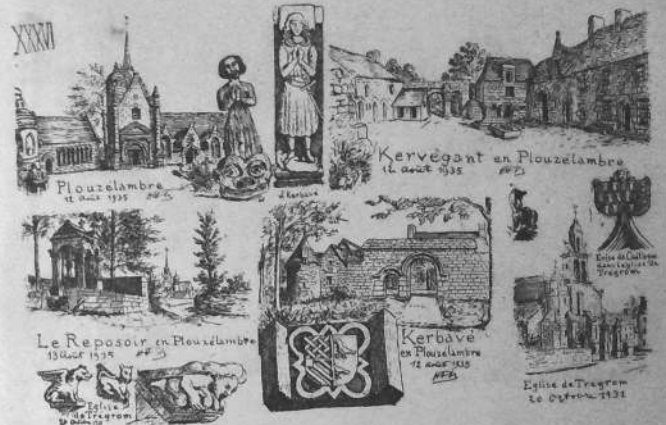 XXXVI
Plouzélambre
12 Août 1935
Kerbavé
Kervégant en Plouzélambre
12 Août 1935
Le Reposoir en Plouzélambre
13 Août 1935
Kerbavé
en Plouzélambre
12 août 1935
dans l'église de
Trégrom
Eglise de Tregrom
20 Octobre 1932
Eglise
de Tregrom